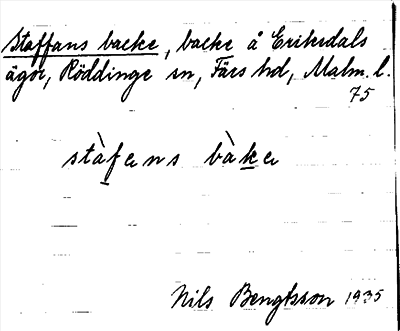 Staffans backe, backe å Eriksdals
ägor, Röddinge sn, Färs hd, Malm. l.
75
stàfens bàka
Nils Bengtsson 1935